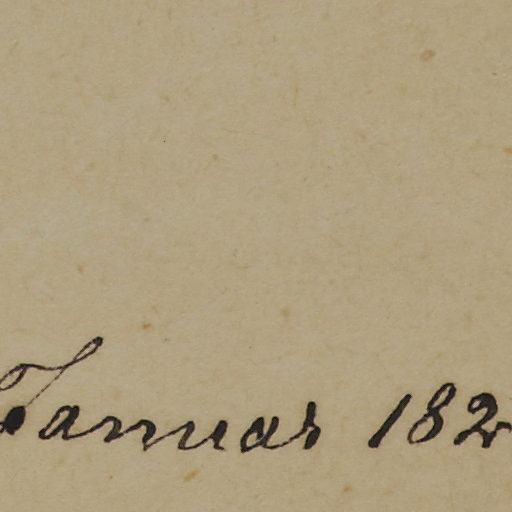 Januar 182